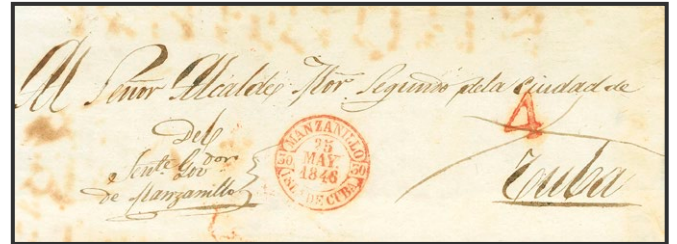 Al Señor Alcalde Mor. Segundo de la Ciudad de
4
Del
Tente. Govdor.
de Manzanillo
MANZANILLO
30 25 30
MAY.
1846
ISLA DE CUBA
Cuba